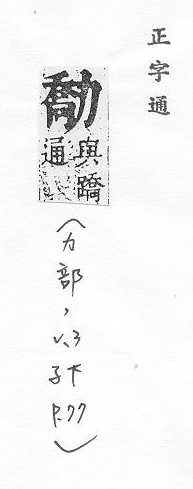 正字通
勪
與蹻
通
(力部, v.3
子下
P.77)